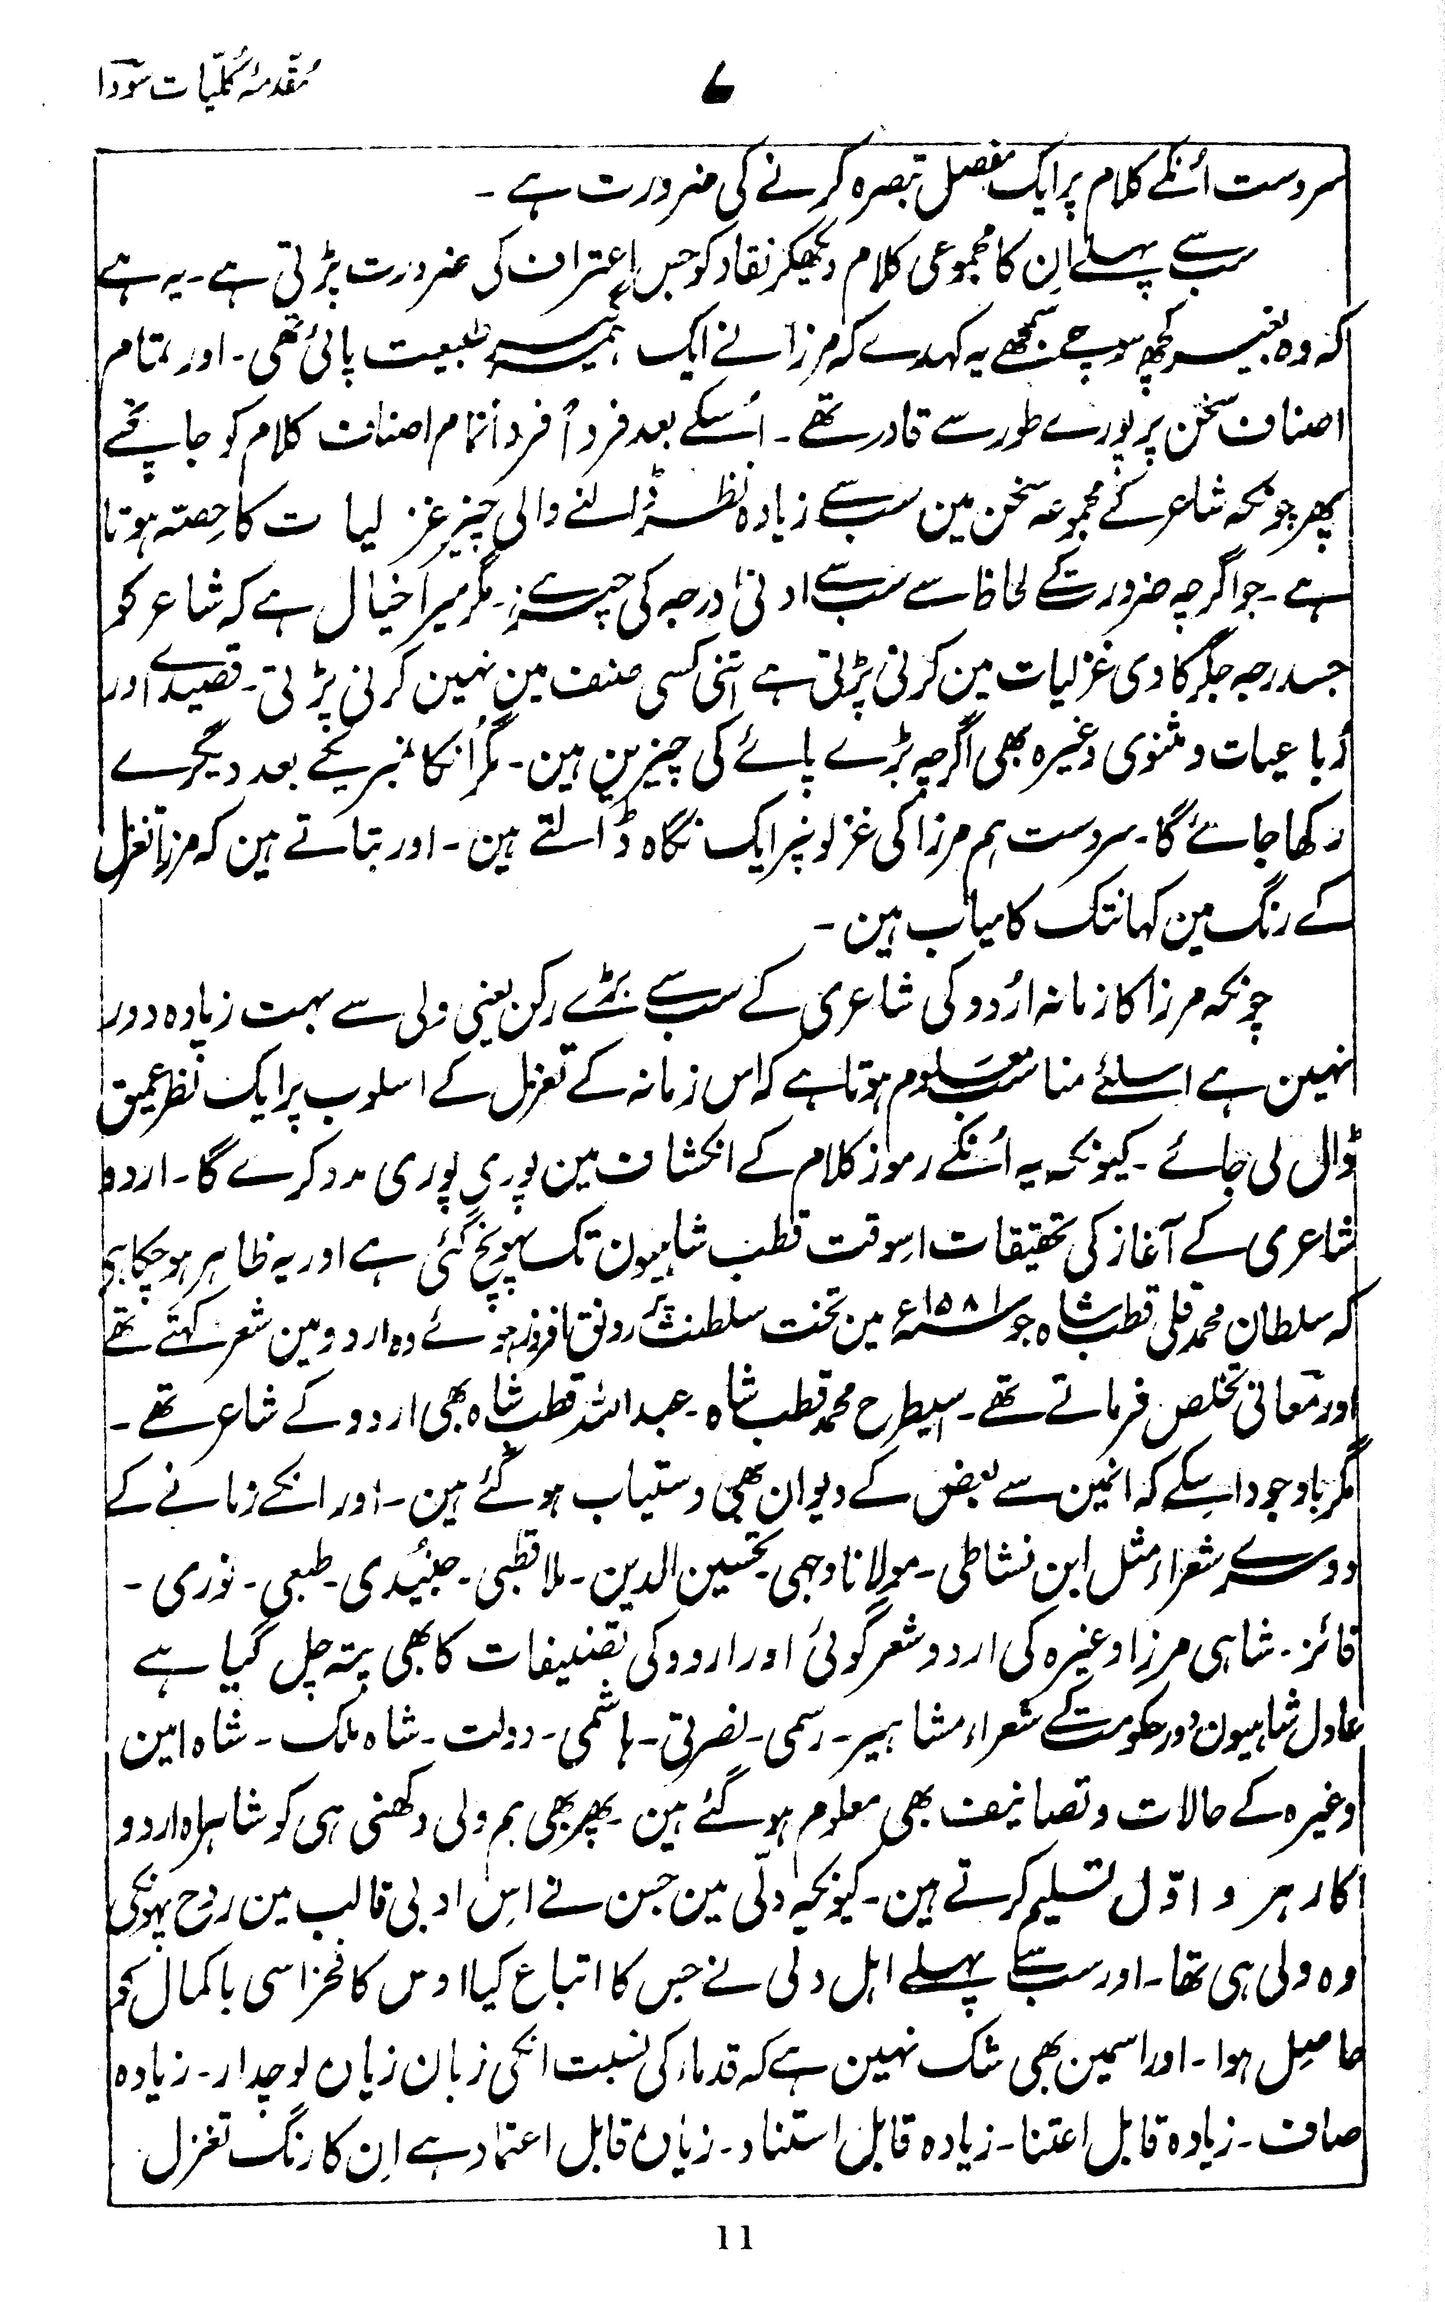 مُقدمۂ کُلّیات سوؔدا
۷
سردست اُنکے کلام پر ایک مفصل تبصرہ کرنے کی ضرورت ہے ۔
سب سے پہلے اِن کا مجموعی کلام دیکھکر نقاد کو جس اعتراف کی ضرورت پڑتی ہے ۔ یہ ہے
کہ وہ بغیر کچھ سوچے سمجھے یہ کہدے کہ مرزا نے ایک ہمہ گیر طبیعت پائی تھی ۔ اور تمام
اصناف سخن پر پورے طور سے قادر تھے ۔ اُسکے بعد فرداً فرداً تمام اصناف کلام کو جانچئے
پھر چونکہ شاعر کے مجموعہ سخن مین سب سے زیادہ نظر ڈالنے والی چیز غزلیات کا حِصتہ ہوتا
ہے ۔ جو اگرچہ ضرورت کے لحاظ سے سب سے ادنیٰ درجہ کی چیز ہے ۔ مگر میرا خیال ہے کہ شاعر کو
جسدرجہ جگر کاوی غزلیات مین کرنی پڑتی ہے اتنی کسی صنف مین نہین کرنی پڑتی ۔ قصیدے اور
رُباعیات و مثنوی وغیرہ بھی اگرچہ بڑے پائے کی چیزین ہین ۔ مگر اُنکا نمبر یکے بعد دیگرے
رکھا جائے گا ۔ سردست ہم مرزا کی غزلونپر ایک نگاہ ڈالتے ہین ۔ اور بتاتے ہین کہ مرزا تغزل
کے رنگ مین کہانتک کامیاب ہین ۔
چونکہ مرزا کا زمانہ اُردو کی شاعری کے سب سے بڑے رکن یعنی ولی سے بہت زیادہ دور
نہین ہے اسلئے مناسب معلوم ہوتا ہے کہ اس زمانہ کے تغزل کے اسلوب پر ایک نظر عمیق
ڈال لی جائے ۔ کیونکہ یہ اُنکے رموز کلام کے انکشاف مین پوری پوری مدد کرے گا ۔ اردو
شاعری کے آغاز کی تحقیقات اسوقت قطب شاہیون تک پہونچ گئی ہے اور یہ ظاہر ہو چکا ہی
کہ سلطان محمد قلی قطب شاہ جو ۱۵۸۱ء مین تخت سلطنت پر رونق افروز ہوئے وہ اردو مین شعر کہتے تھے
اور معانی تخلص فرماتے تھے ۔ اسیطرح محمد قطب شاہ ۔ عبداللہ قطب شاہ بھی اردو کے شاعر تھے ۔
مگر باوجود اسکے کہ انمین سے بعض کے دیوان بھی دستیاب ہو گئے ہین ۔ اور انکے زمانے کے
دوسرے شعراء مثل ابن نشاطی ۔ مولانا وجہی ۔ تحسین الدین ۔ ملا قطبی ۔ جنیُدی ۔ طبعی ۔ نوری ۔
فائز ۔ شاہی مرزا وغیرہ کی اردو شعر گوئی اور اردو کی تصنیفات کا بھی پتہ چل گیا ہے
عادل شاہیون دور حکومت کے شعراء مشاہیر ۔ رسمی ۔ نصرتی ۔ ہاشمی ۔ دولت ۔ شاہ ملک ۔ شاہ امین
وغیرہ کے حالات و تصانیف بھی معلوم ہو گئے ہین ۔ پھر بھی ہم ولی دکھنی ہی کو شاہراہ اردو
کا رہرو اوّل تسلیم کرتے ہین ۔ کیونکہ دلّی مین جس نے اِس ادبی قالب مین روح پھونکی
وہ ولی ہی تھا ۔ اور سب سے پہلے اہل دلی نے جس کا اتباع کیا اوس کا فخر اسی باکمال کو
حاصِل ہوا ۔ اور اسمین بھی شک نہین ہے کہ قدماء کی نسبت انکی زبان زیادہ لوچدار ۔ زیادہ
صاف ۔ زیادہ قابل اعتنا ۔ زیادہ قابل استناد ۔ زیادہ قابل اعتماد ہے اِن کا رنگ تغزل
۱۱